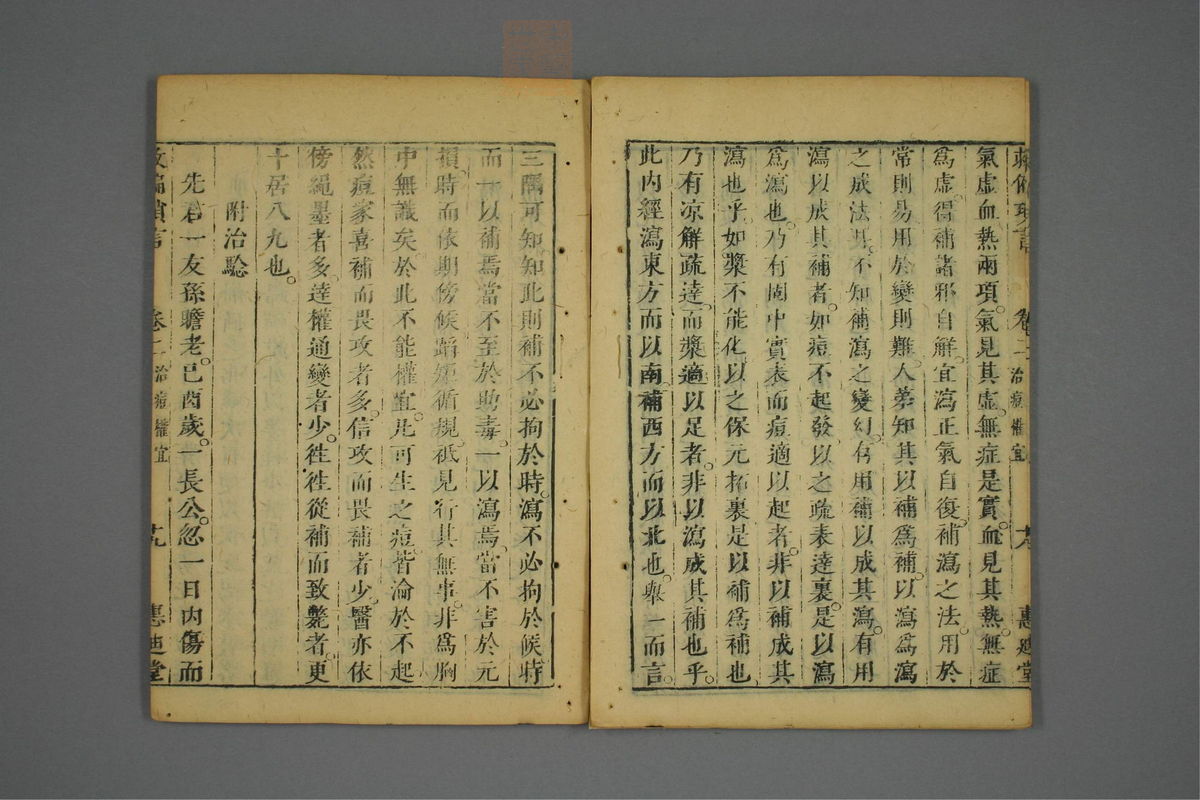 氣虛血熱兩項。氣見其虛。無症是實。血見其熱。無症
為虛。得補諸邪自解。宜瀉正氣自復。補瀉之法。用於
常則易。用於變則難。人第知其以補為補。以瀉為瀉
之成法耳。不知補瀉之變幻。有用補以成其瀉。有用
瀉以成其補者。如痘不起發。以之疏表達裏。是以瀉
為瀉也。乃有固中實表而痘適以起者。非以補成其
瀉也乎。如漿不能化。以之保元拓裏。是以補為補也
乃有凉解疏達。而漿適以足者。非以瀉成其補也乎。
此內經瀉東方而以南。補西方而以北也。舉一而言。
卷二 治痘權宜 十八 惠迪堂
三隅可知。知此則補不必拘於時。瀉不必拘於候。時
而一以補焉。當不至於助毒。一以瀉焉。當不害於元
損。時而依期傍候。蹈矩循規。祇見行其無事。非為胸
中無識矣。於此不能權宜。凡可生之痘。皆淪於不起
然痘家喜補而畏攻者多。信攻而畏補者少。醫亦依
傍繩墨者多。達權通變者少。徃徃從補而致斃者。更
十居八九也。
附治騐
先君一友孫瞻老。己酉歲。一長公。忽一日內傷而
卷二 治痘權宜 十九 惠迪堂